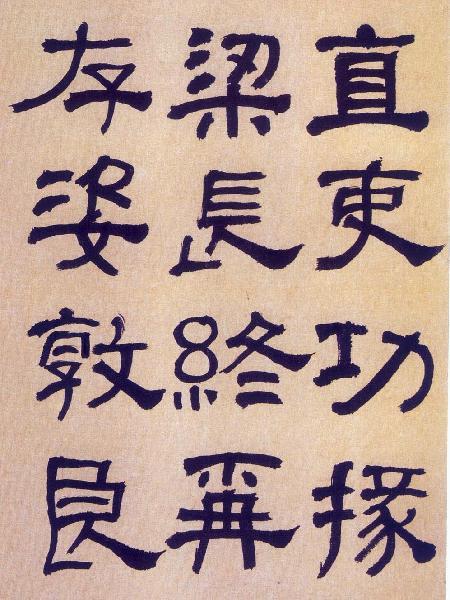 直吏功掾
梁長終再
存姿敦良